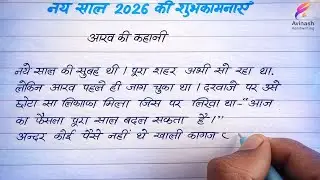 नये साल 2026 की शुभकामनाएं
Avinash
आरव की कहानी
नये साल की सुबह थी। पूरा शहर अभी सो रहा था,
लेकिन आरव पहले ही जाग चुका था। दरवाजे पर उसे
छोटा सा लिफाफा मिला जिस पर लिखा था-"आज
का फैसला पूरा साल बदल सकता है।"
अन्दर कोई पैसे नहीं थे खाली कागज